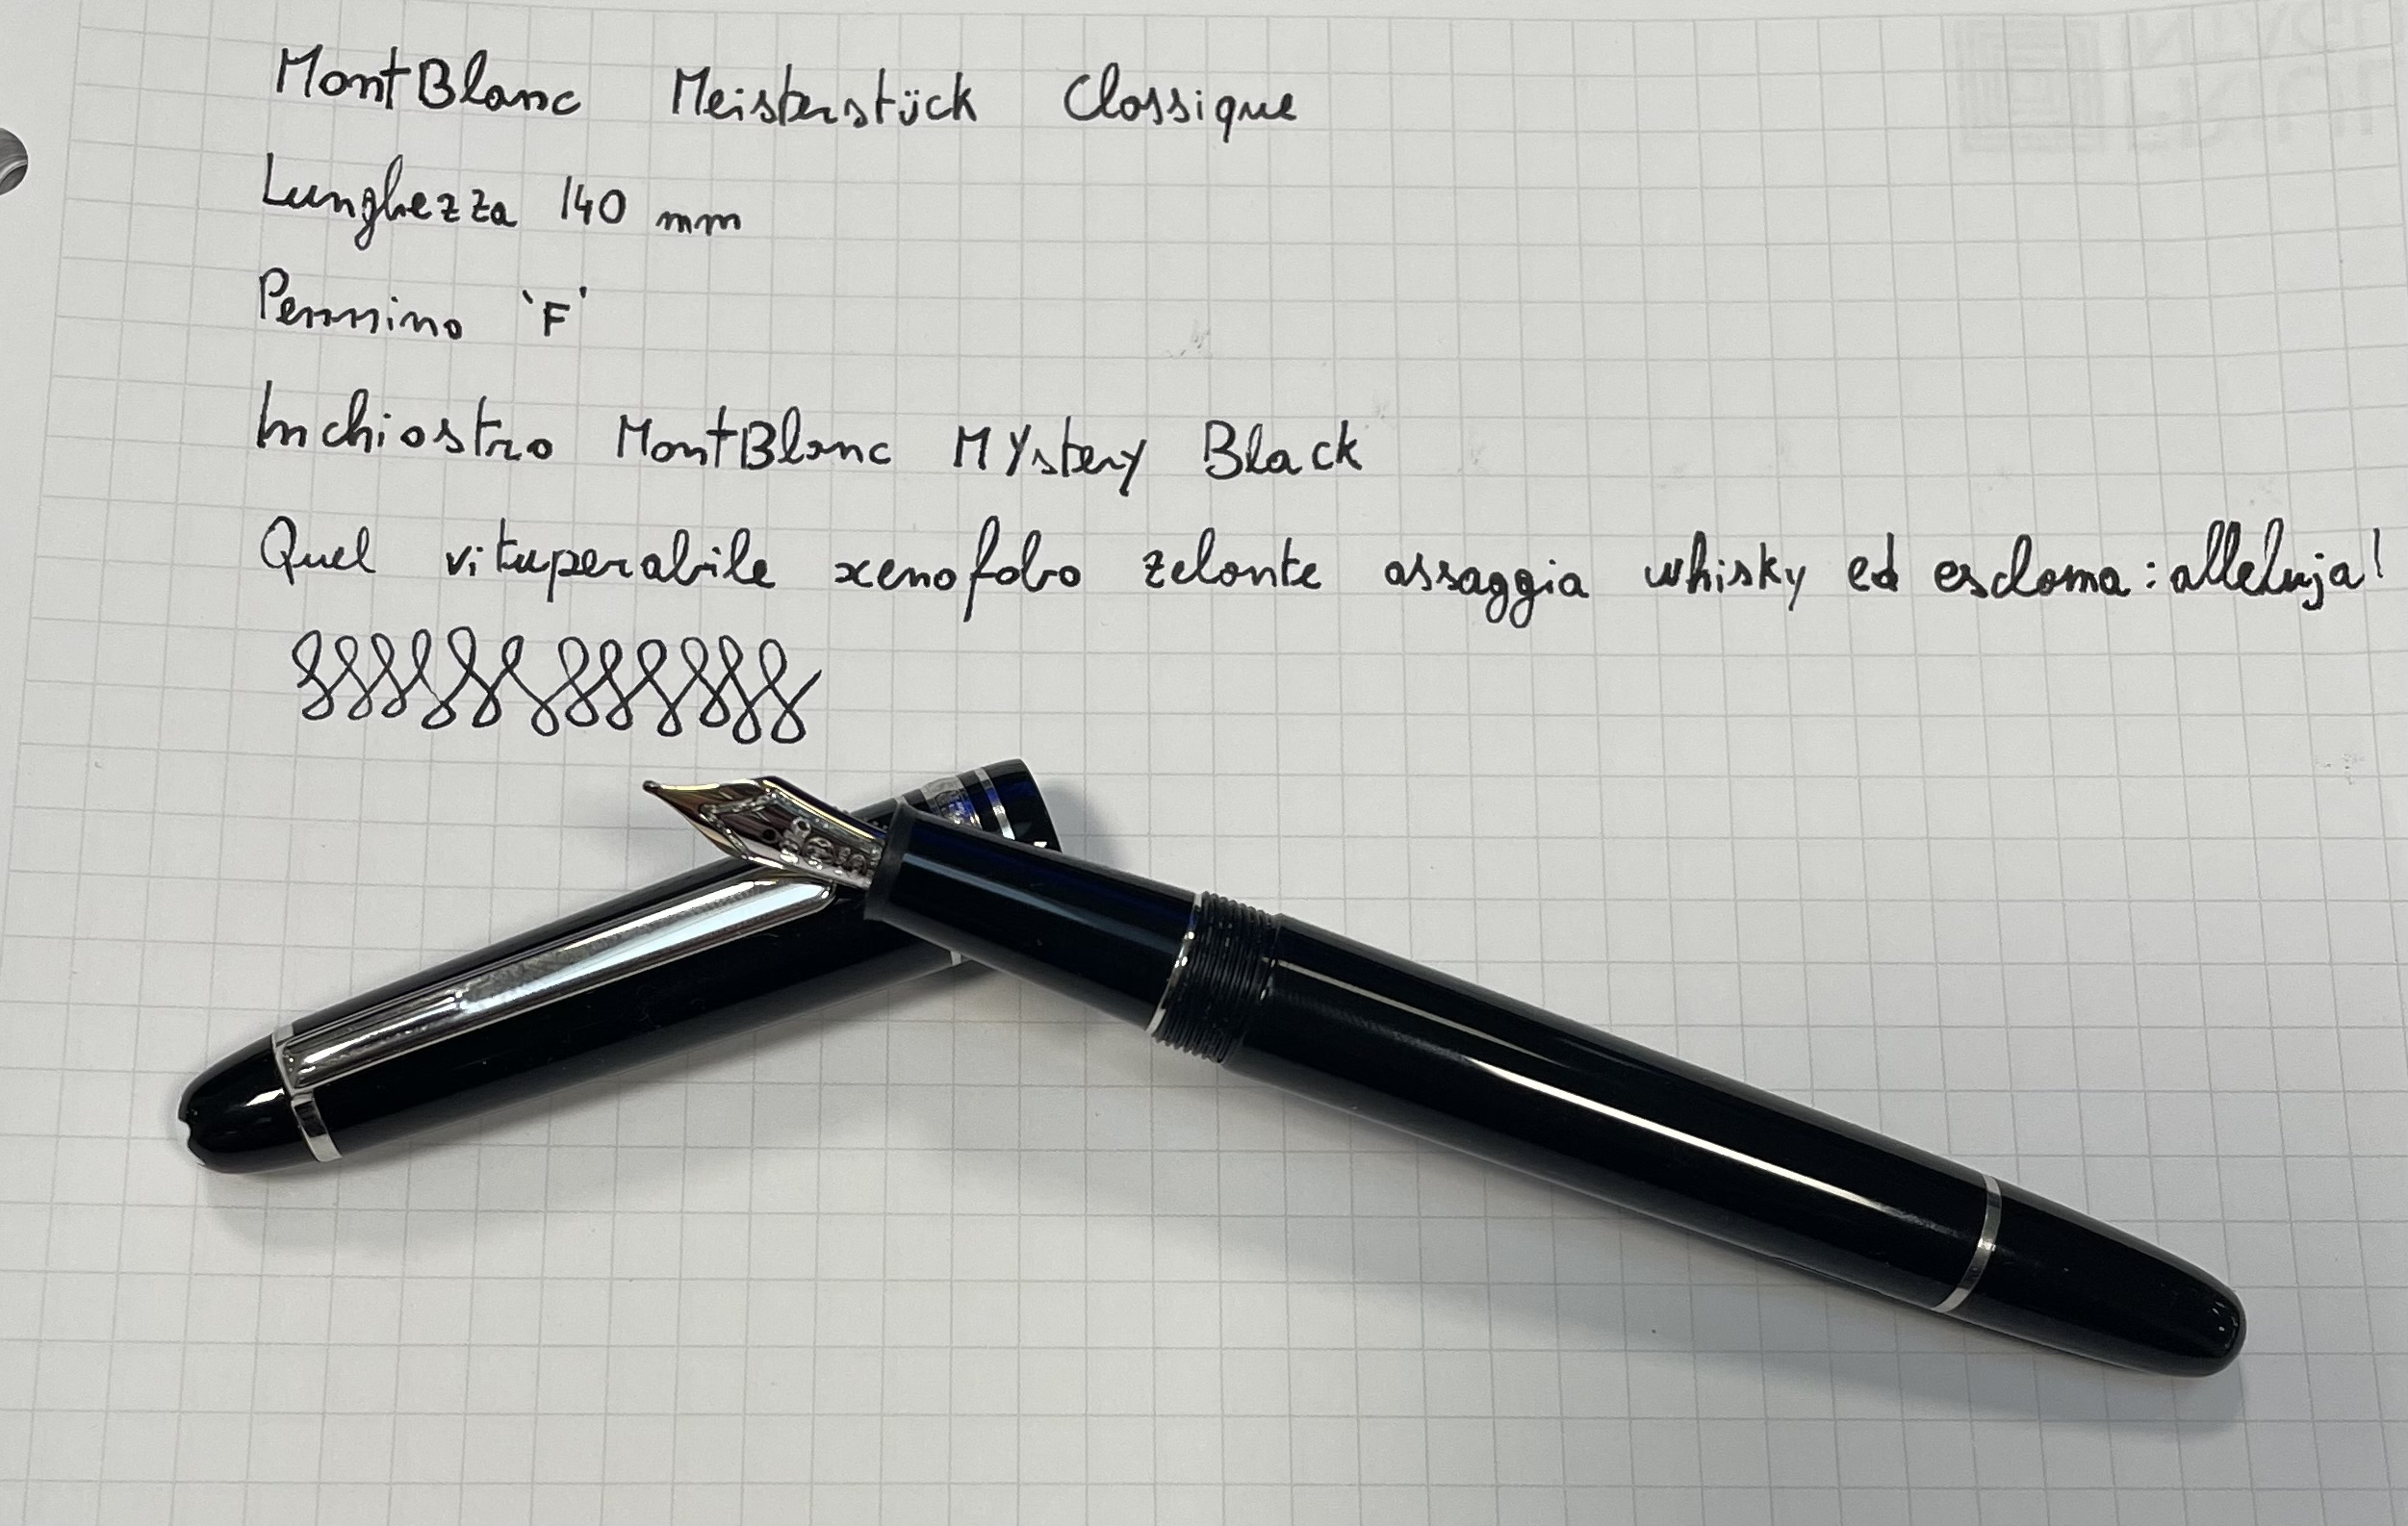 MontBlanc Meisterstück Classique
Lunghezza 140 mm
Pennino 'F'
Inchiostro MontBlanc MYstery Black
Quel vituperabile xenofobo zelante assaggia whisky ed esclama: alleluja!